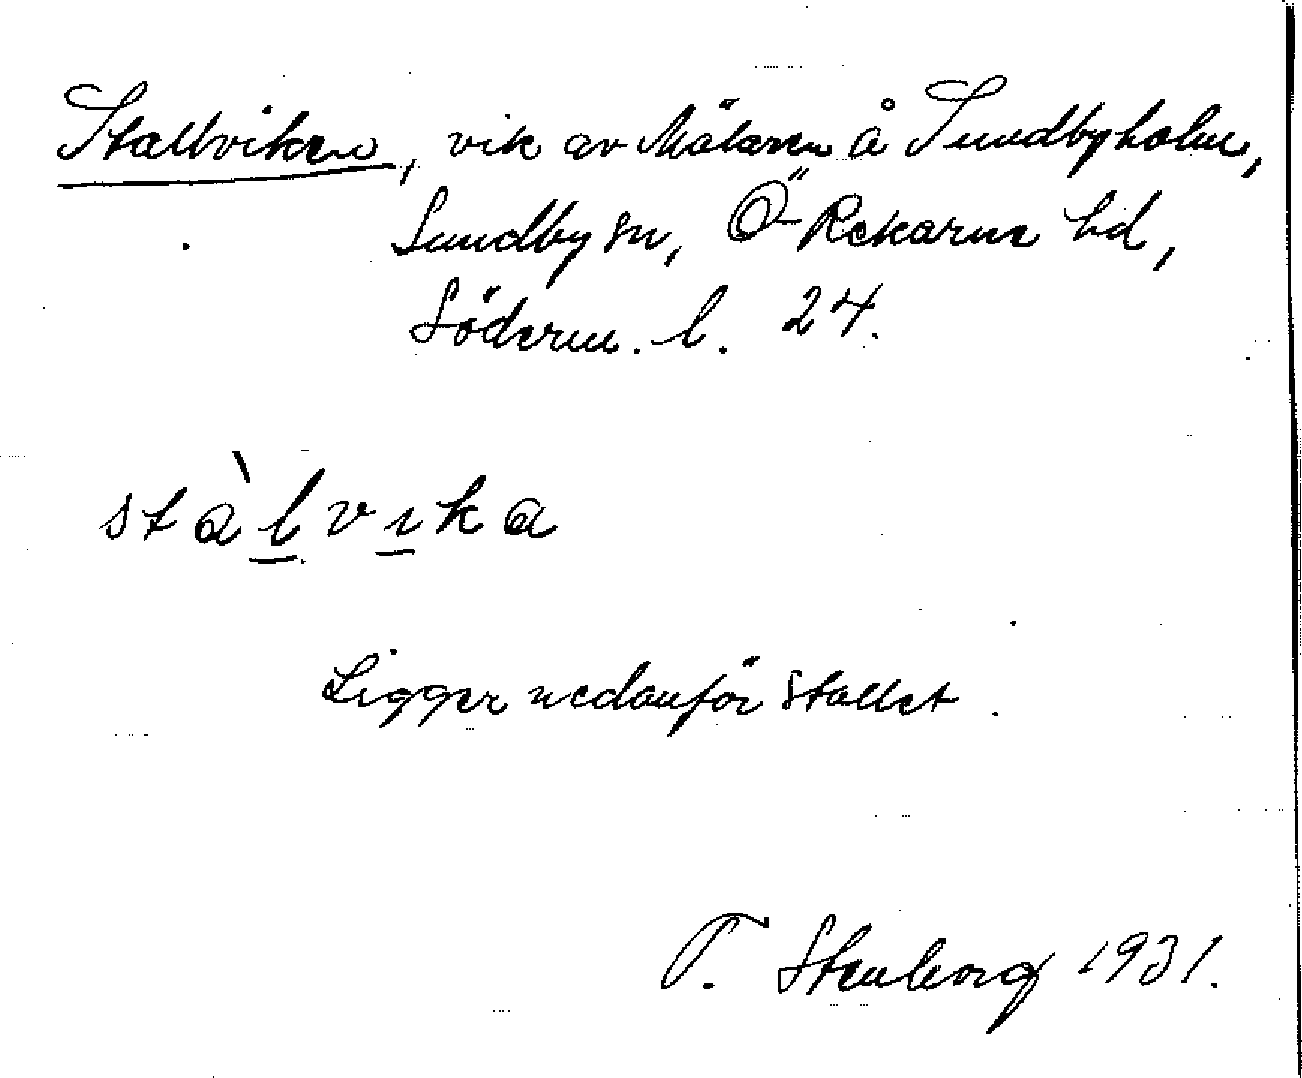 Stallviken, vik av Mälaren å Sundbyholm,
Sundby sn, Ö Rekarne hd,
Söderm. l. 24.
stàlvıka
Ligger nedanför stallet.
T. Stenborg 1931.